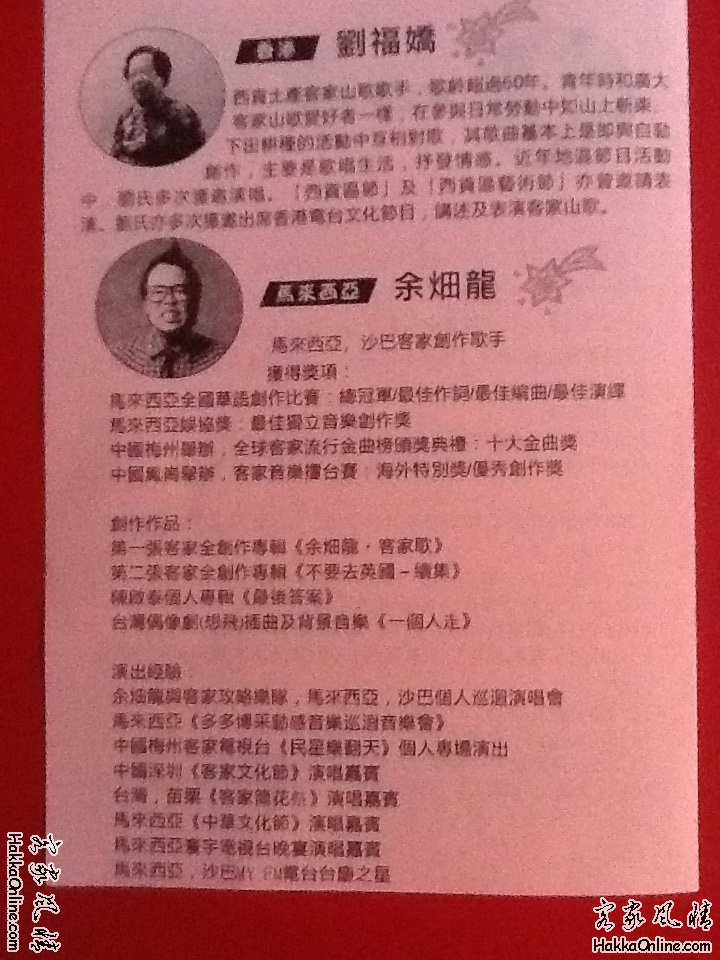 香港 劉福嬌
西貢土產客家山歌歌手，歌齡超過60年。青年時和廣大
客家山歌愛好者一樣，在參與日常勞動中如山上斬柴、
下田耕種的活動中互相對歌，其歌曲基本上是即興自動
創作，主要是歌唱生活，抒發情感。近年地區節目活動
中，劉氏多次獲邀演唱。「西貢區節」及「西貢區藝術節」亦曾邀請表
演。劉氏亦多次獲邀出席香港電台文化節目，講述及表演客家山歌。
馬來西亞 余畑龍
馬來西亞，沙巴客家創作歌手
獲得獎項：
馬來西亞全國華語創作比賽：總冠軍/最佳作詞/最佳編曲/最佳演繹
馬來西亞娛協獎：最佳獨立音樂創作獎
中國梅州舉辦，全球客家流行金曲榜頒獎典禮：十大金曲獎
中國鳳崗舉辦，客家音樂擂台賽：海外特別獎/優秀創作獎
創作作品：
第一張客家全創作專輯《余畑龍·客家歌》
第二張客家全創作專輯《不要去英國－續集》
陳啟泰個人專輯《最後答案》
台灣偶像劇(想飛)插曲及背景音樂《一個人走》
演出經驗：
余畑龍與客家攻略樂隊，馬來西亞，沙巴個人巡迴演唱會
馬來西亞《多多博采動感音樂巡迴音樂會》
中國梅州客家電視台《民星樂翻天》個人專場演出
中國深圳《客家文化節》演唱嘉賓
台灣，苗栗《客家簡花祭》演唱嘉賓
馬來西亞《中華文化節》演唱嘉賓
馬來西亞寰宇電視台晚宴演唱嘉賓
馬來西亞，沙巴MY FM電台台慶之星
客家風情
HakkaOnline.com
客家風情
HakkaOnline.com